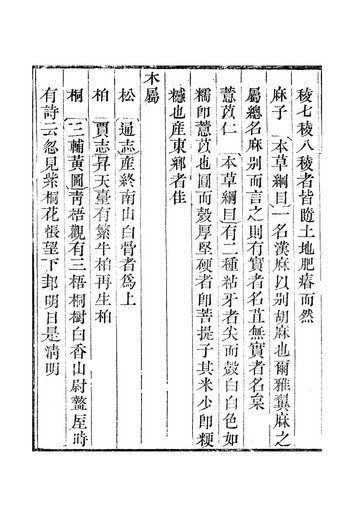 稜七稜八稜者皆隨土地肥瘠而然
麻子 本草綱目一名漢麻以別胡麻也爾雅翼麻之
屬總名麻別而言之則有實者名苴無實者名枲
薏苡仁 本草綱目有二種粘牙者尖而殼白白色如
糯即薏苡也圓而殼厚堅硬者即菩提子其米少即粳
也産東鄉者佳
木屬
松 通志產終南山白骨者爲上
柏 賈志昇天臺有繫牛柏再生柏
桐 三輔黃圖青梧觀有三梧桐樹白香山尉盩厔時
有詩云忽見紫桐花悵望下邽明日是清明